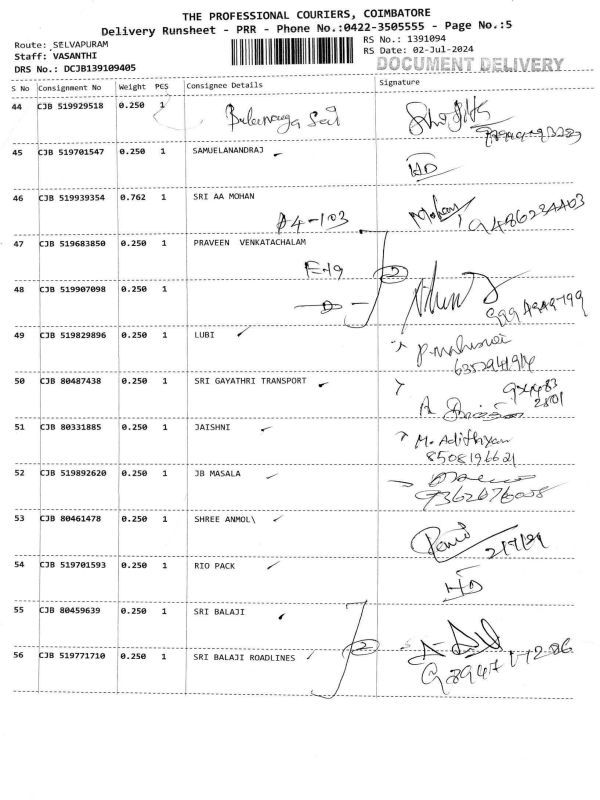 THE PROFESSIONAL COURIERS, COIMBATORE
Delivery Runsheet - PRR - Phone No.:0422-3505555 - Page No.:5
Route: SELVAPURAM
RS No.: 1391094
Staff: VASANTHI
RS Date: 02-Jul-2024
DRS No.: DCJB139109405
DOCUMENT DELIVERY
S No Consignment No Weight PCS Consignee Details Signature
44 CJB 519929518 0.250 1
45 CJB 519701547 0.250 1 SAMUELANANDRAJ
HD
46 CJB 519939354 0.762 1 SRI AA MOHAN Mohan
D4-103
47 CJB 519683850 0.250 1 PRAVEEN VENKATACHALAM
E-19 2
48 CJB 519907098 0.250 1
49 CJB 519829896 0.250 1 LUBI
6352941914
50 CJB 80487438 0.250 1 SRI GAYATHRI TRANSPORT
51 CJB 80331885 0.250 1 JAISHNI M. Adithyan
8508196621
52 CJB 519892620 0.250 1 JB MASALA
53 CJB 80461478 0.250 1 SHREE ANMOL\
2/7/24
54 CJB 519701593 0.250 1 RIO PACK
HD
55 CJB 80459639 0.250 1 SRI BALAJI
2
56 CJB 519771710 0.250 1 SRI BALAJI ROADLINES